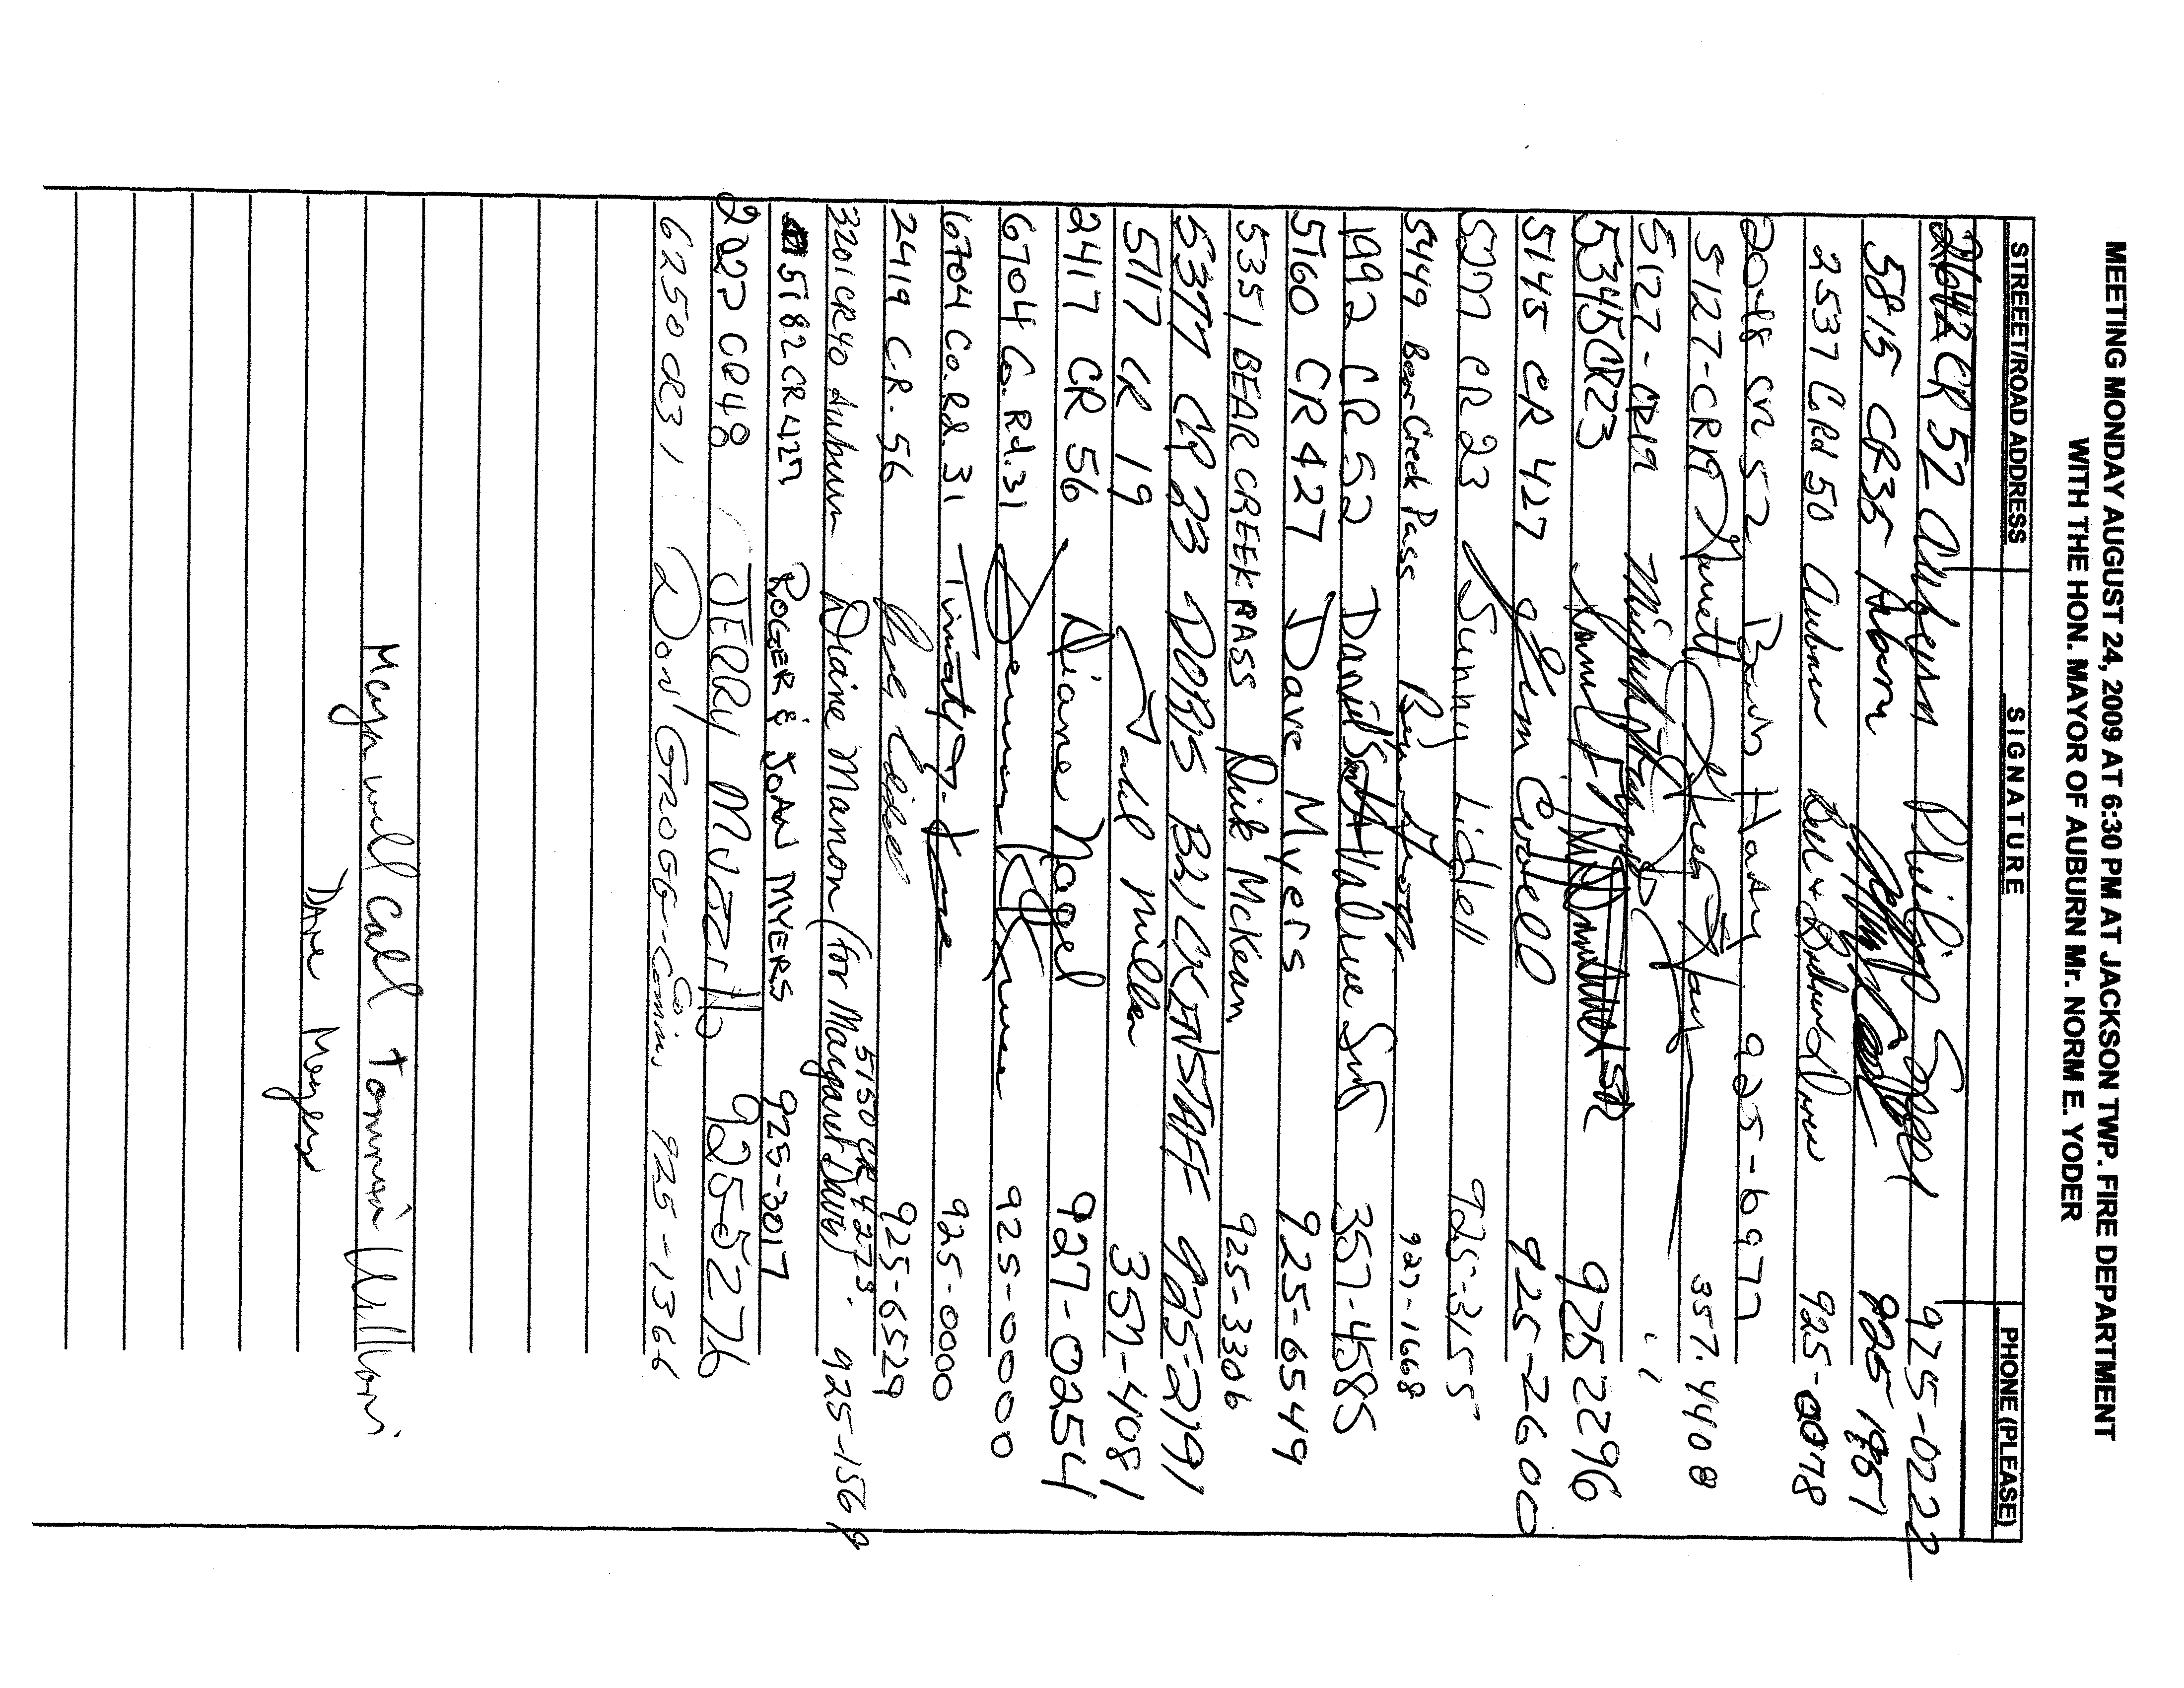 MEETING MONDAY AUGUST 24, 2009 AT 6:30 PM AT JACKSON TWP. FIRE DEPARTMENT
WITH THE HON. MAYOR OF AUBURN Mr. NORM E. YODER
STREEET/ROAD ADDRESS SIGNATURE PHONE (PLEASE)
2642 CR 52 Auburn Philip 925-0228
5815 CR35 Auburn 925 1951
2537 CRd 50 Auburn Bill & 925-0078
2048 CR 52 925-6977
5127-CR19 Garrett 357-4408
5127-CR19 "
5345 CR23 925 2296
5145 CR 427 Jim 925-2600
CR 23 Sunny Liddell 925-3155
5449 Bear Creek Pass 927-1668
1992 CR 52 Daniel Smith 357-4585
5160 CR 427 Dave Myers 925-6549
5351 BEAR CREEK PASS Dick McKean 925-3306
5377 CR 23 DORIS BLICKENSTAFF 925-2191
5117 CR 19 Todd Miller 357-4081
2417 CR 56 Diane Nagel 927-0254
6704 Co. Rd. 31 925-0000
6704 Co. Rd. 31 Timothy 925-0000
2419 C.R. 56 925-6529
5150 CR 427
3201 CR40 Auburn Diane Manon (for Margaret Davis) 925-1569
5182 CR 427 ROGER & JOAN MYERS 925-3017
CR48 JERRY 9255276
6250 CR31 Don GROGG 925-1366
Mayor will call Tommie Williams
Dave Meyers